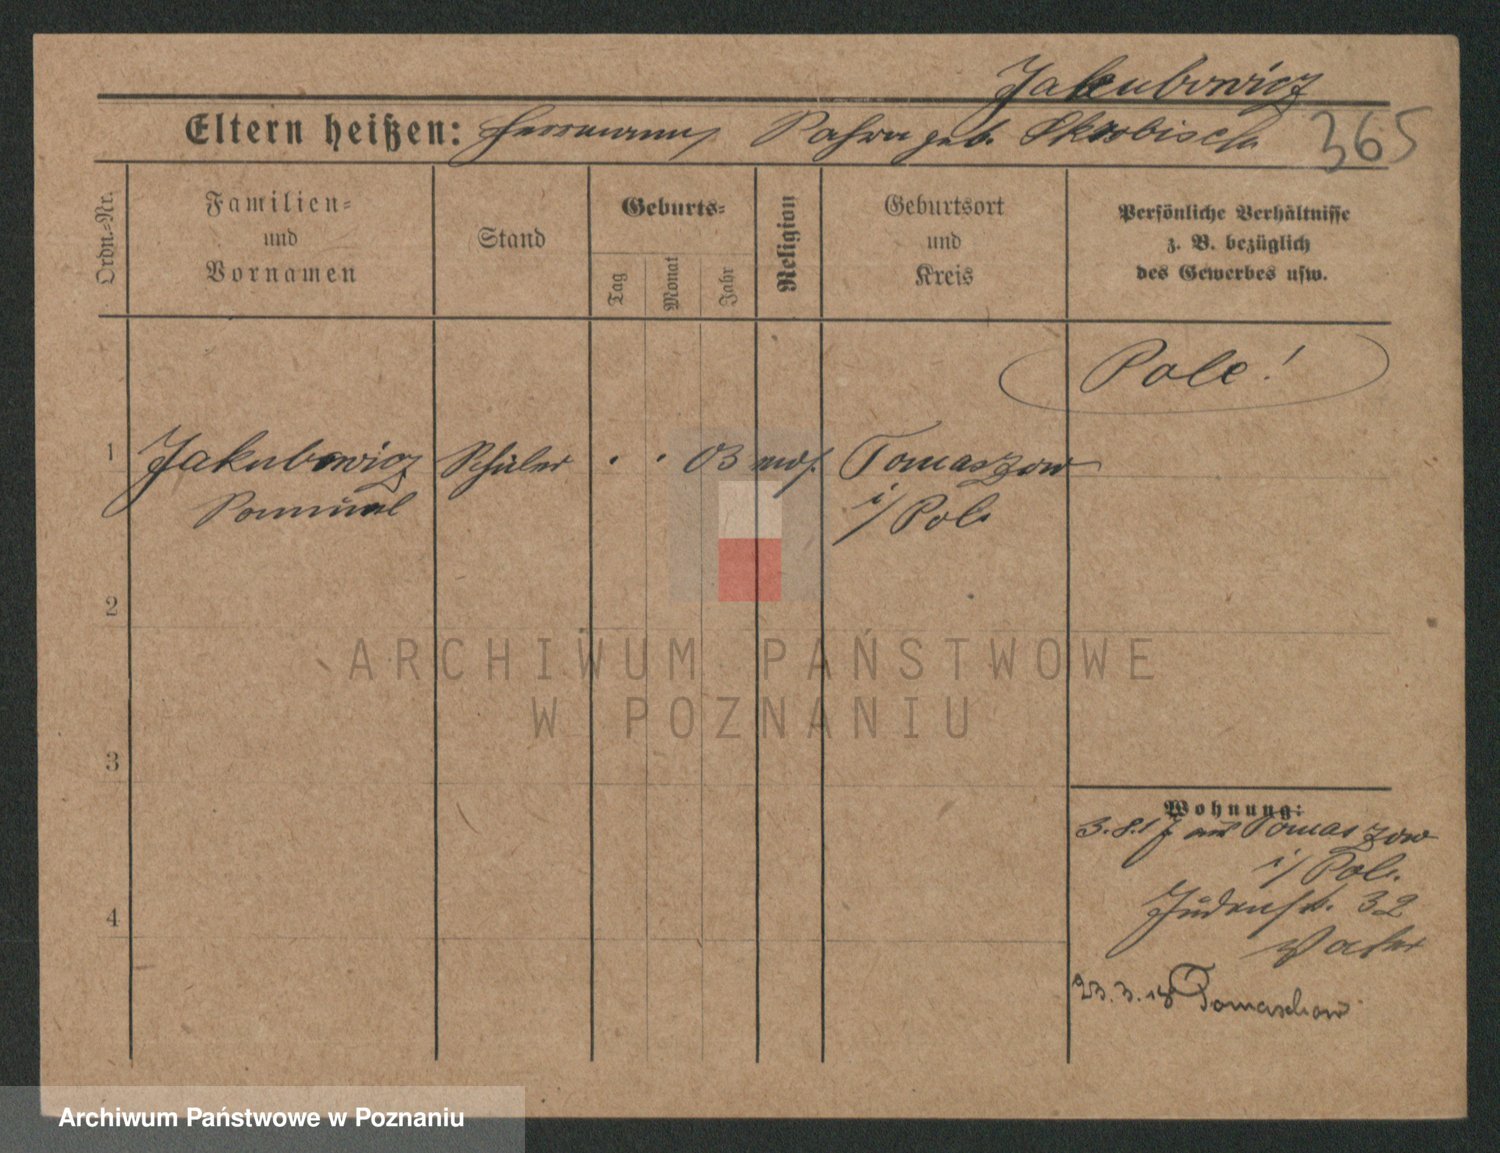 Jakubowicz
Eltern heißen: Herrmann, geb. Skrobisch 365
Ordn.-Nr.
Familien-
und
Vornamen
Stand
Geburts-
Tag
Monat
Jahr
Religion
Geburtsort
und
Kreis
Persönliche Verhältnisse
z. B. bezüglich
des Gewerbes usw.
Pole!
1 Jakubowicz Schüler . . 03 mos. Tomaszow
i/Pol.
2
3
4
Wohnung:
3.8.17 aus Tomaszow
i/Pol.
Judenstr. 32
23.3.18 Tomaschow
ARCHIWUM PAŃSTWOWE
W POZNANIU
Archiwum Państwowe w Poznaniu